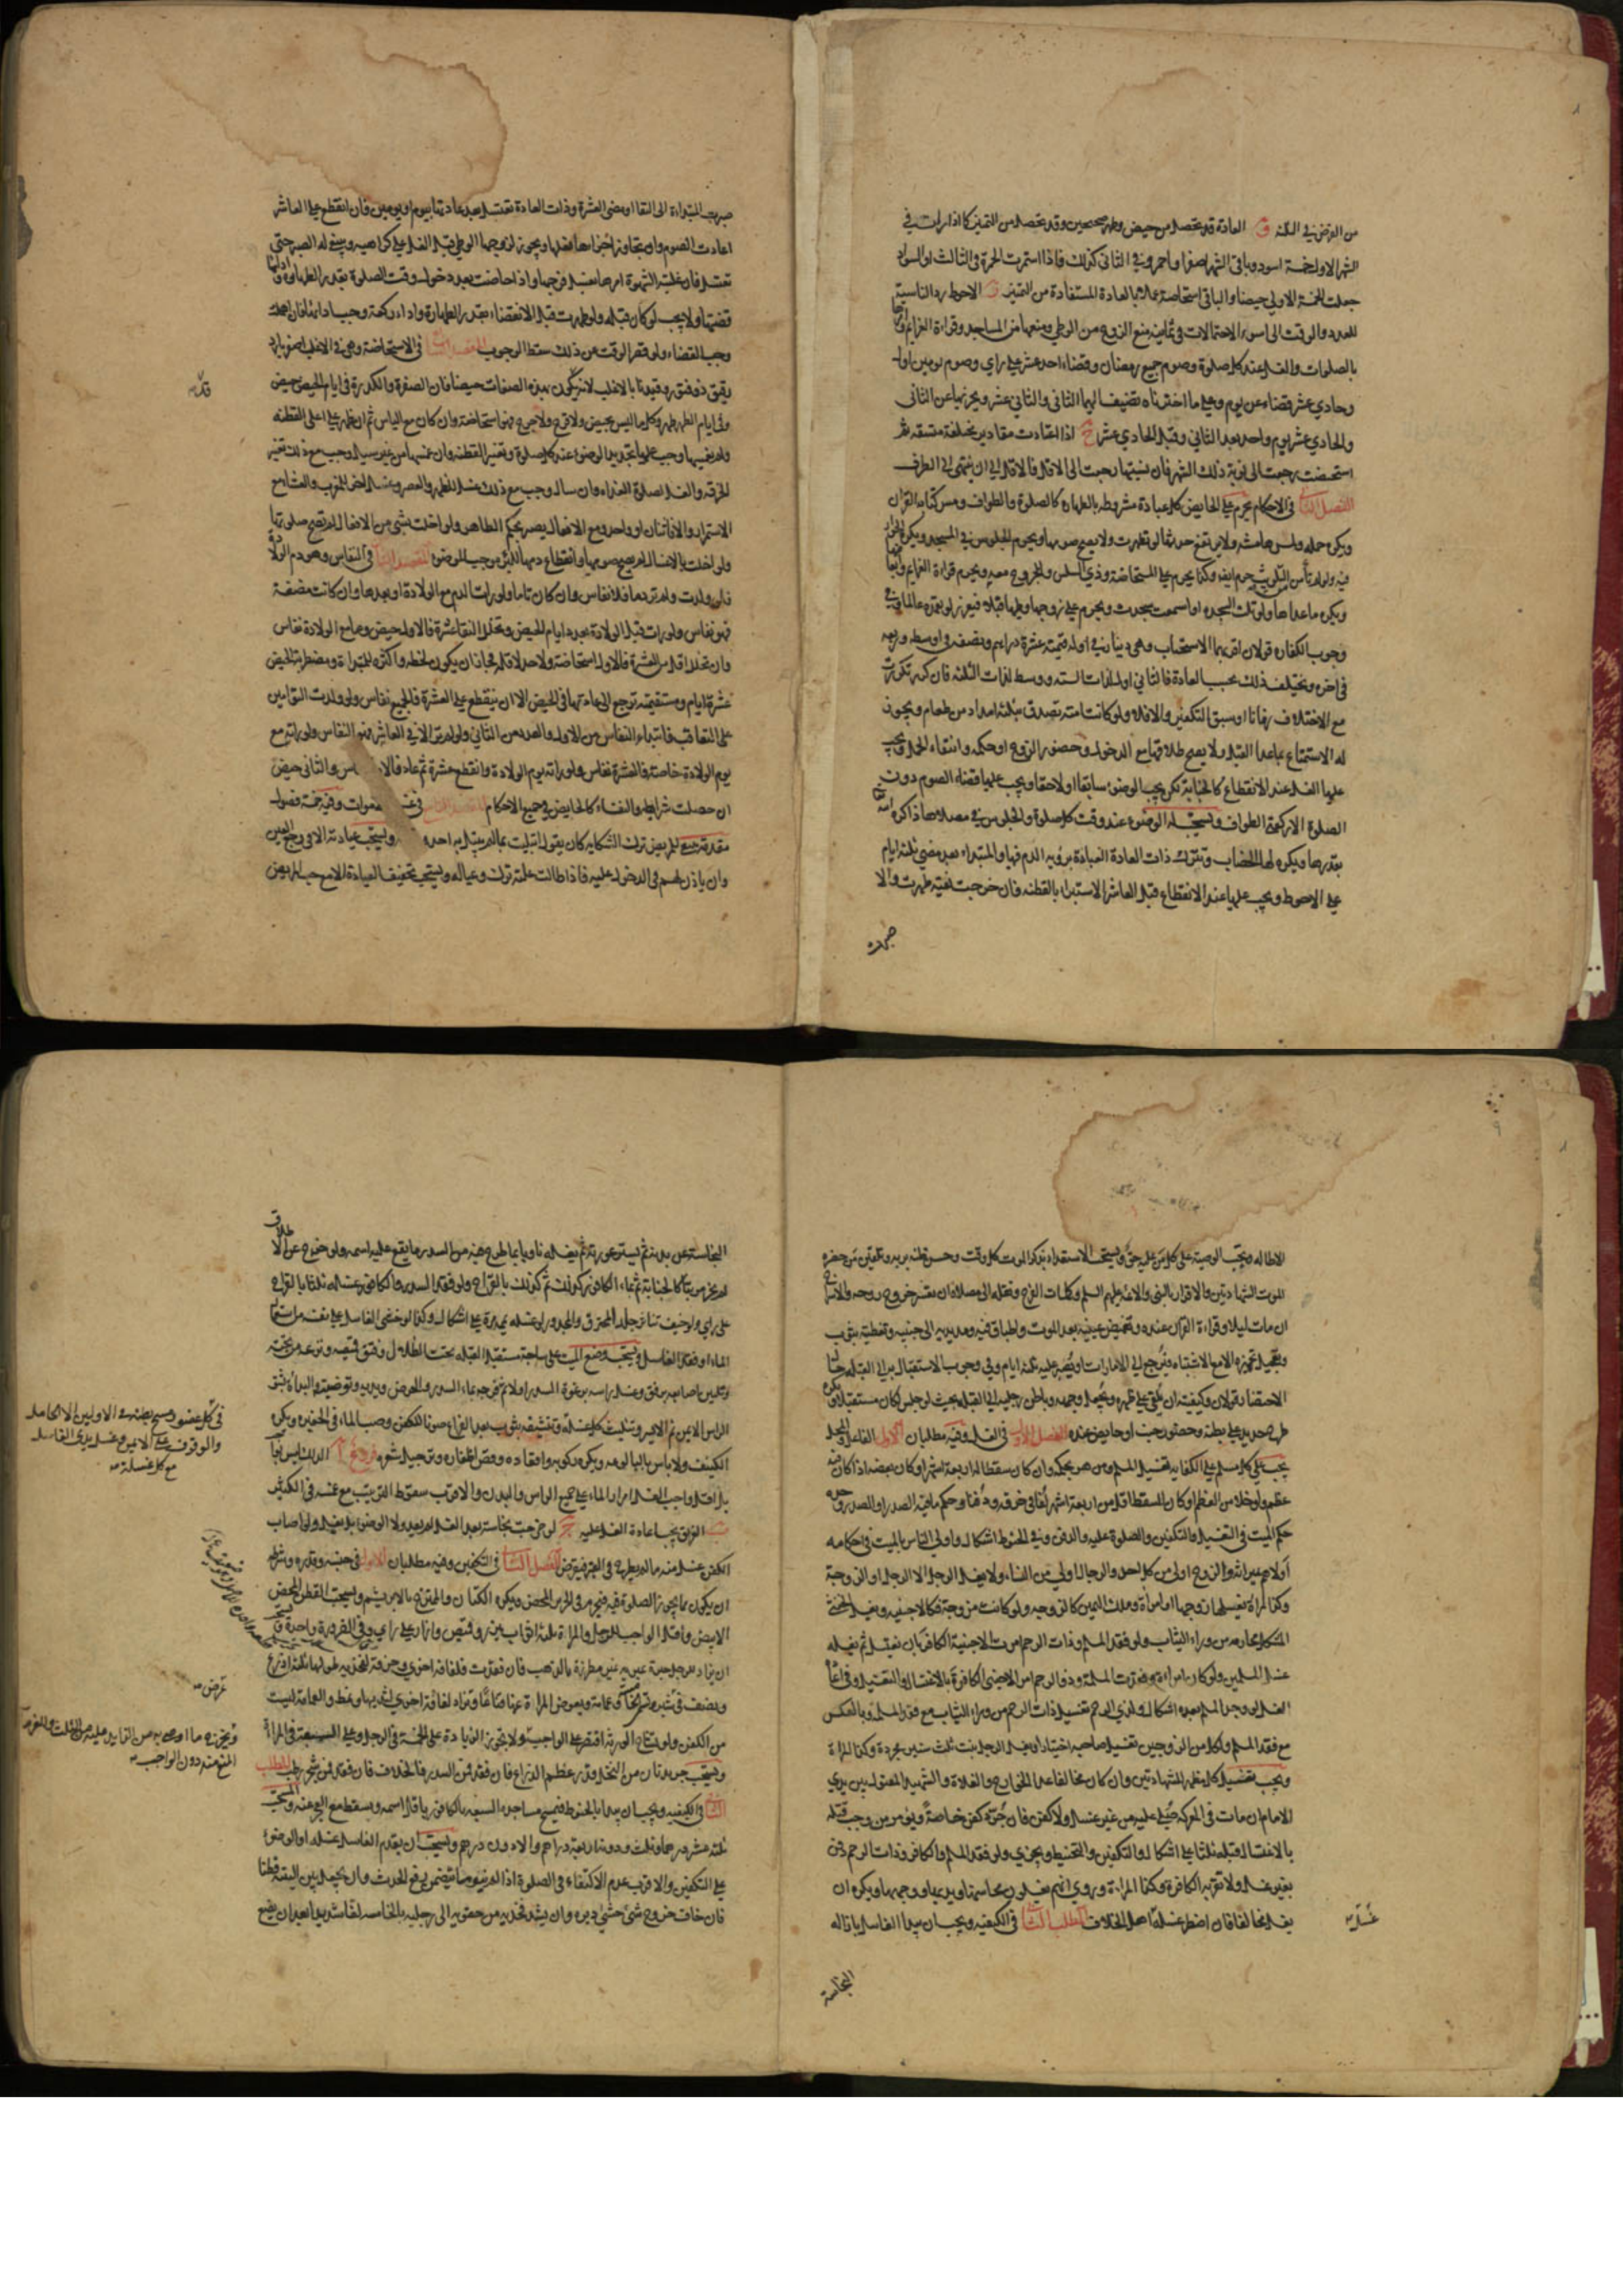 من الفرض في الثلثه ق العادة قد تحصل من حيض وطهر صحيحين وقد تحصل من التميز كما اذا رات في
الشهر الاول خمسة اسود وباقي الشهر اصفر او احمر وفي الثاني كذلك فاذا استمرت الحمرة في الثالث او السواد
جعلت الخمسة الاولى حيضا والباقي استحاضة عملا بالعادة المستفادة من التميز الاحوط رد الناسية
للعدد والوقت الى اسوء الاحتمالات في ثمانية منع الزوج من الوطي ومنعها من المساجد وقراءة العزايم وامرها
بالصلوات والغسل عند كل صلوة وصوم جميع رمضان وقضاء احد عشر على راي وصوم يومين اول
وحادي عشر قضاء عن يوم وعلى ما اخترناه تضيف اليهما الثاني والثاني عشر ويجزيها عن الثاني
والحادي عشر يوم واحد بعد الثاني وقبل الحادي عشر ج اذا اعتادت مقادير مختلفة متسقه ثم
استحيضت رجعت الى نوبة ذلك الشهر فان نسيتها رجعت الى الاقل فالاقل الى ان ينتهى الى الطرف
الفصل الثاني في الاحكام يحرم على الحايض كل عبادة مشروطه بالطهاره كالصلوة والطواف ومس كتابه القران
ويكره حمله ولمس هامشه ولا يرتفع حدثها لو تطهرت ولا يصح صومها ويحرم الجلوس في المسجد ويكره الجواز
فيه ولو لم تأمن التلويث حرم ايضا وكذا يحرم على المستحاضة وذي السلس والمجروح معه ويحرم قراءة العزايم وابعاضها
ويكره ماعداها ولو تلت السجده او استمعت سجدت ويحرم على زوجها وطيها قبلا فيعزر لو تعمده عالما وفي
وجوب الكفاره قولان اقربهما الاستحباب وهي دينار في اوله قيمته عشرة دراهم ونصفه في اوسطه وربعه
في اخره ويختلف ذلك بحسب العادة فالثاني اول لذات السته ووسط لذات الثلثه فان كرره تكررت
مع الاختلاف زمانا او سبق التكفير والا فلا ولو كانت امته تصدق بثلثه امداد من طعام ويجوز
له الاستمتاع بماعدا القبل ولا يصح طلاقها مع الدخول وحضور الزوج او حكمه وانتفاء الحمل ويجب
عليها الغسل عند الانقطاع كالجنابة لكن يجب الوضوء سابقا او لاحقا ويجب عليها قضاء الصوم دون
الصلوة الا ركعتي الطواف ويستحب لها الوضوء عند وقت كل صلوة والجلوس في مصلاها ذاكرة لله تعالى
بقدرها ويكره لها الخضاب وتترك ذات العادة العبادة برؤيه الدم فيها والمبتداء بعد مضي ثلثه ايام
على الاحوط ويجب عليها عند الانقطاع قبل العاشر الاستبراء بالقطنه فان خرجت نقيه طهرت والا
صبرت
صبرت المبتداءة الى النقا او مضى العشرة وذات العادة تغتسل بعد عادتها بيوم او يومين فان انقطع على العاشر
اعادت الصوم وان تجاوز اجزاها فعلها ويجوز لزوجها الوطي قبل الغسل على كراهيه وينبغي له الصبر حتى
تغتسل فان غلبته الشهوة امرها بغسل فرجها واذا حاضت بعد دخول وقت الصلوة بقدر الطهاره وادائها
قضتها ولا يجب لو كان قبله ولو طهرت قبل الانقضاء بقدر الطهارة واداء ركعة وجب اداؤها فان اهملت
وجب القضاء ولو قصر الوقت عن ذلك سقط الوجوب المقصد الثامن في الاستحاضة وهي في الاغلب اصفر بارد
رقيق ذو فتور وقيدنا بالاغلب لانه قد يكون بهذه الصفات حيضا فان الصفرة والكدرة في ايام الحيض حيض
وفي ايام الطهر طهر وكل ما ليس بحيض ولا قرح ولا جرح فهو استحاضة وان كان مع الياس ثم ان ظهر على اعلى القطنه
ولم يغمسها وجب عليها تجديد الوضوء عند كل صلوة وتغيير القطنه وان غمسها من غير سيل وجب مع ذلك تغيير
الخرقه والغسل لصلوة الغداء وان سال وجب مع ذلك غسل للظهر والعصر وغسل اخر للمغرب والعشا مع
الاستمرار والا فاثنان او واحد ومع الافعال يصير بحكم الطاهر ولو اخلت بشئ من الافعال لم تصح صلوتها
ولو اخلت بالاغسال لم يصح صومها وانقطاع دمها للبرء يوجب الوضوء المقصد التاسع في النفاس وهو دم الولادة
فلو ولدت ولم تر دما فلا نفاس وان كان تاما ولو رات الدم مع الولادة او بعدها وان كانت مضغة
فهو نفاس ولو رات قبل الولادة بعدد ايام الحيض وتخلل النقا عشرة فالاول حيض وما مع الولادة نفاس
وان تخلل اقل من العشرة فالاول استحاضة ولا حد لاقله فجاز ان يكون لحظه واكثره للمبتداءة ومضطربة الحيض
عشرة ايام ومستقيمته ترجع الى عادتها في الحيض الا ان ينقطع على العشرة فالجميع نفاس ولو ولدت التوامين
على التعاقب فابتداء النفاس من الاول والعدد من الثاني ولو لم تر الا في العاشر فهو النفاس ولو راته مع
يوم الولادة خاصة فالعشرة نفاس ولو راته يوم الولادة وانقطع عشرة ثم عاد فالاول نفاس والثاني حيض
ان حصلت شرايطه والنفساء كالحايض في جميع الاحكام المقصد العاشر في غسل الاموات وفيه خمسة فصول
مقدمة ينبغي للمريض ترك الشكايه كان يقول ابتليت بما لم يبتل به احد ويستحب عيادته الا في وجع العين
وان ياذن لهم في الدخول عليه فاذا طالت علته ترك وعياله ويستحب تخفيف العيادة الا مع حب المريض
قدّر
الاطاله ويجب الوصية على كل من عليه حق ويستحب الاستعداد بذكر الموت كل وقت وحسن ظنه بربه وتلقين من حضره
الموت الشهادتين والاقرار بالنبي والائمه عليهم السلم وكلمات الفرج ونقله الى مصلاه ان تعسر خروج روحه والاسراج
ان مات ليلا وقراءة القران عنده وتغميض عينيه بعد الموت واطباق فيه ومد يديه الى جنبيه وتغطيته بثوب
وتعجيل تجهيزه الا مع الاشتباه فيرجع الى الامارات او يصبر عليه ثلثه ايام وفي وجوب الاستقبال به الى القبله حاله
الاحتضار قولان وكيفيته ان يلقى على ظهره ويجعل وجهه وباطن رجليه الى القبله بحيث لو جلس لكان مستقبلا ويكره
طرح حديد على بطنه وحضور جنب او حايض عنده الفصل الاول في الغسل وفيه مطلبان الاول الفاعل والمحل
يجب على كل مسلم على الكفايه تغسيل المسلم ومن هو بحكمه وان كان سقطا له اربعة اشهر او كان بعضه اذا كان فيه
عظم ولو خلا من العظم او كان للسقط اقل من اربعة اشهر لفا في خرقه ودفنا وحكم ما فيه الصدر او الصدر وحده
حكم الميت في التغسيل والتكفين والصلوة عليه والدفن وفي الحنوط اشكال واولى الناس بالميت في احكامه
اولاهم بميراثه والزوج اولى من كل احد والرجال اولى من النساء ولا يغسل الرجل الا الرجل او الزوجة
وكذا المراة يغسلها زوجها او امراة وملك اليمين كالزوجه ولو كانت مزوجة فكالاجنبيه ويغسل الخنثى
المشكل محارمه من وراء الثياب ولو فقد المسلم وذات الرحم امرت الاجنبية الكافر بان يغتسل ثم يغسله
غسل المسلمين ولو كان امراءة وفقدت المسلمة وذو الرحم امر الاجنبى الكافرة بالاغتسال والتغسيل وفي اعادة
الغسل لو وجد المسلم بعده اشكال ولذي الرحم تغسيل ذات الرحم من وراء الثياب مع فقد المسلمة وبالعكس
مع فقد المسلم ولكل من الزوجين تغسيل صاحبه اختيارا ويغسل الرجل بنت ثلث سنين مجردة وكذا المراة
ويجب تغسيل كل مظهر للشهادتين وان كان مخالفا عدا الخوارج والغلاة والشهيد المقتول بين يدي
الامام ان مات في المعركه صلي عليه من غير غسل ولا كفن فان جرد كفن خاصة ويؤمر من وجب قتله
بالاغتسال قبله ثلثا على اشكال والتكفين والتحنيط ويجزي ولو فقد المسلم والكافر وذات الرحم دفن
بغير غسل ولا تقربه الكافرة وكذا المراة وروي انهم يغسلون محاسنها ويديها ووجهها ويكره ان
يغسل مخالفا فان اضطر غسله غسل اهل الخلاف المطلب الثاني في الكيفيه ويجب ان يبدأ الغاسل بازاله
غسّله
النجاسة
النجاسة عن بدنه ثم يستر عورته ثم يغسله ناويا بماء طرح فيه من السدر ما يقع عليه اسمه ولو خرج عن الاطلاق
لم يجز مرتبا كالجنابة ثم بماء الكافور كذلك ثم كذلك بالقراح ولو فقد السدر والكافور غسله ثلثا بالقراح
على راي ولو خيف تناثر جلد المحترق والمجدور لو غسله يممه مرة على اشكال وكذا لو خشي الغاسل على نفسه من استعمال
الماء او فقد الغاسل ويستحب وضع الميت على ساجة مستقبل القبله تحت الظلال وفتق قميصه ونزعه من تحته
وتليين اصابعه برفق وغسل راسه برغوة السدر اولا ثم فرجه بماء السدر والحرض ويديه وتوضيته والبداءة بشق
الراس الايمن ثم الايسر وتثليث كل غسلة وتنشيفه بثوب بعد الفراغ صونا للكفن وصب الماء في الحفيره ويكره
الكنيف ولا باس بالبالوعه ويكره ركوبه واقعاده وقص اظفاره وترجيل شعره فروع آ الدلك ليس بواجب
بل اقل واجب الغسل امرار الماء على جميع الراس والبدن والاقرب سقوط الترتيب مع غمسه في الكثير
ب الغريق يجب اعادة الغسل عليه ج لو خرجت نجاسة بعد الغسل لم يعد ولا الوضوء بل يغسل ولو اصاب
الكفن غسل منه ما لم يطرح في القبر فيقرض الفصل الثاني في التكفين وفيه مطلبان الاول في جنسه وقدره وشرطه
ان يكون مما يجوز الصلوة فيه فيحرم في الحرير المحض ويكره الكتان والممتزج بالابريشم ويستحب القطن المحض
الابيض واقل الواجب للرجل والمراة ثلثة اثواب ميزر وقميص وازار على راي وفي الضرورة واحدة ويستحب
ان يزاد للرجل حبرة عبريه غير مطرزة بالذهب فان فقدت فلفافة اخرى وخرقة لفخذيه طولها ثلثة اذرع
ونصف في عرض شبر وعمامة ويعوض المراة عنها قناعا وتزاد لفافة اخرى لثدييها ونمط والعمامة ليست
من الكفن ولو تشاح الورثة اقتصر على الواجب ولا يجوز الزيادة على الخمسة في الرجل وعلى السبعة في المراة
ويستحب جريدتان من النخل قدر عظم الذراع فان فقد فمن السدر فالخلاف فان فقد فمن شجر رطب المطلب
الثاني في الكيفيه ويجب ان يبدا بالحنوط فيمسح مساجده السبعه بالكافور باقل اسمه ويسقط مع العجز عنه والمستحب
ثلثه عشر درهما وثلث ودونه اربعة دراهم والادون درهم ويستحب ان يقدم الغاسل غسله او الوضوء
على التكفين والاقرب عدم الاكتفاء في الصلوة اذا لم ينو ما يتضمن رفع الحدث وان يجعل بين اليتيه قطنا
فان خاف خروج شئ حشي دبره وان يشد فخذيه من حقويه الى رجليه بالخامسه لفا شديدا بعد ان يضع
في كل عضو ومسح بطنه في الاوليين الا الحامل
والوقوف على الايمن وغسل يدي الغاسل
مع كل غسلة
عرض